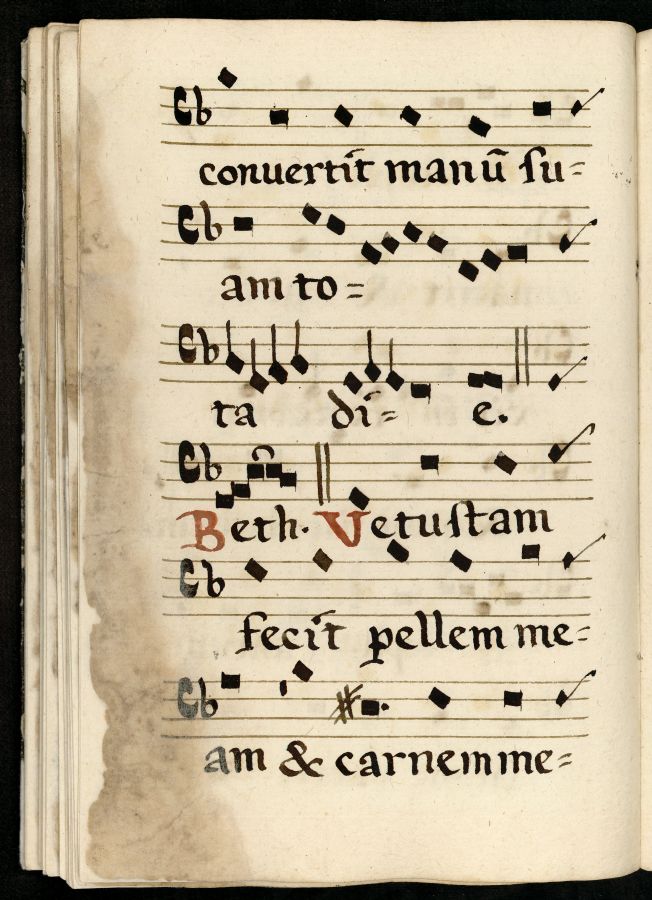 conuertit manū ſu=
am to=
ta di= e.
Beth. Vetuſtam
fecit pellem me=
am & carnem me=